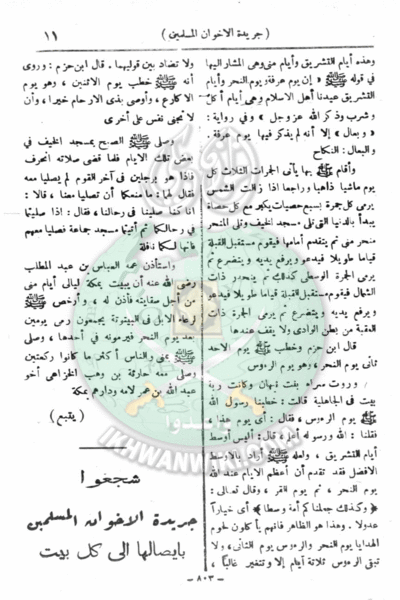 ( جريدة الاخوان المسلمين )
١١
وهذه أيام التشريق وأيام منى وهى المشار اليها
فى قوله ﷺ « إن يوم عرفة ويوم النحر وأيام
التشريق عيدنا أهل الاسلام وهى أيام أكل
وشرب وذكر الله عز وجل » وفى رواية :
« وبعال » إلا أنه لم يذكر فيها يوم عرفة .
والبعال : النكاح
وأقام ﷺ بها يأتى الجمرات الثلاث كل
يوم ماشيا ذاهبا وراجعا اذا زالت الشمس
يرمى كل جمرة بسبع حصيات يكبر مع كل حصاة
يبدأ بالدنيا التى تلى مسجد الخيف وتلى المنحر
منحر منى ثم يتقدم أمامها فيقوم مستقبل القبلة
قياما طويلا فيدعو ويرفع يديه ويتضرع ثم
يرمى الجمرة الوسطى كذلك ثم ينحدر ذات
الشمال فيقوم مستقبل القبلة قياما طويلا فيدعو
ويرفع يديه ويتضرع ثم يرمى الجمرة ذات
العقبة من بطن الوادى ولا يقف عندها
قال ابن حزم وخطب ﷺ يوم الاحد
ثانى يوم النحر ، وهو يوم الروس
وروت سراء بنت نبهان وكانت ربة
بيت فى الجاهلية قالت : خطبنا رسول الله
ﷺ يوم الروس ، فقال : أى يوم هذا ؟
فقلنا : الله ورسوله أعلم ، قال : أليس أوسط
أيام التشريق ، ولعله ﷺ أراد بالاوسط
الافضل فقد تقدم أن أعظم الايام عند الله
يوم النحر ، ثم يوم القر ، وقال تعالى :
« وكذلك جعلناكم أمة وسطا » أى خياراً
عدولا . وهذا هو الظاهر فانهم يأكلون لحوم
الهدايا يوم النحر والروس يوم الثانى ، ولا
تبقى الروس ثلاثة أيام إلا وتتغير غالباً ،
ولا تضاد بين قوليهما . قال ابن حزم : وروى
أنه ﷺ خطب يوم الاثنين ، وهو يوم
الاكارع ، وأوصى بذى الارحام خيرا ، وأن
لا تجنى نفس على أخرى
وصلى ﷺ الصبح بمسجد الخيف فى
بعض تلك الايام فلما قضى صلاته انحرف
فاذا هو برجلين فى آخر القوم لم يصليا معه
فقال لهما : ما منعكما أن تصليا معنا ، قالا :
انا كنا صلينا فى رحالنا ، فقال : اذا صليتما
فى رحالكما ثم أتيتما مسجد جماعة فصليا معهم
فانها لكما نافلة
واستأذن عمه العباس بن عبد المطلب
رضى الله عنه أن يبيت بمكة ليالى أيام منى
من أجل سقايته فأذن له ، وأرخص ﷺ
لرعاء الابل فى البيتوتة يجمعون رمى يومين
بعد يوم النحر فيرمونه فى أحدهما ، وصلى
ﷺ بمنى والناس أكثر ما كانوا ركعتين
وصلى معه حارثة بن وهب الخزاعى أخو
عبد الله بن عمر لامه ودارهم بمكة
( يتبع )
شجعوا
جريدة الاخوان المسلمين
بايصالها الى كل بيت
— ٨٠٣ —
وأعدوا
IKHWANWIKI